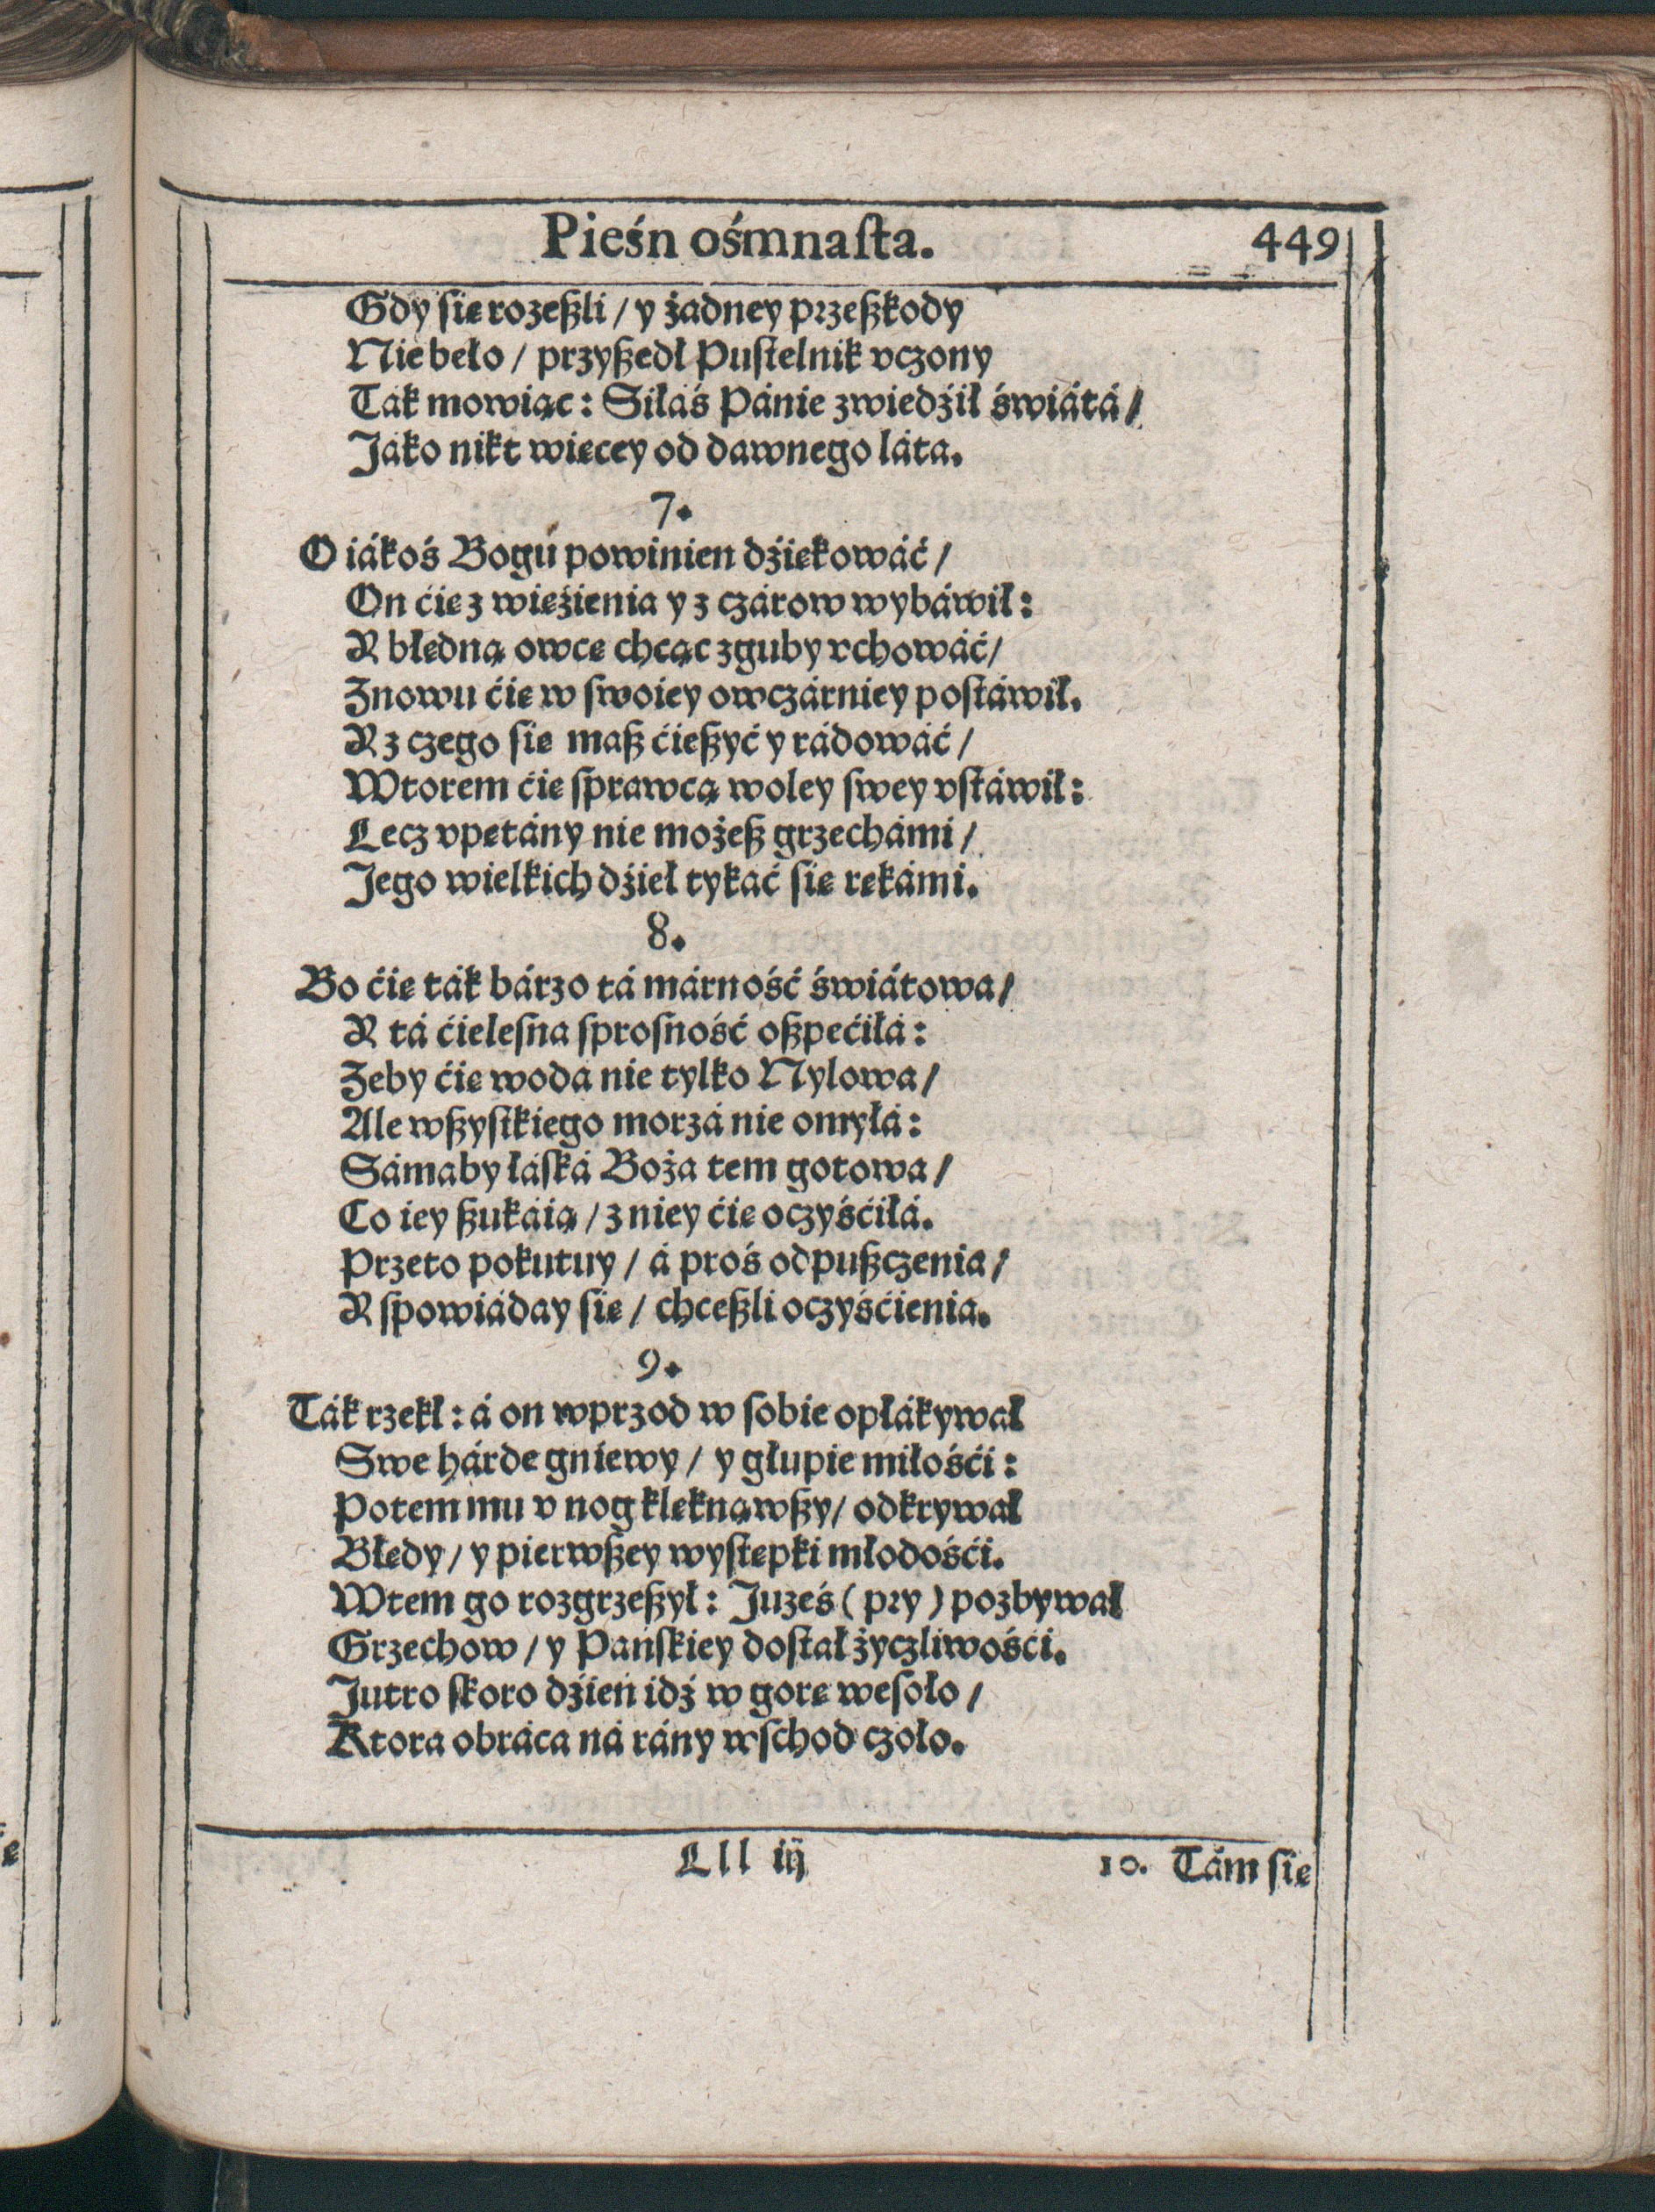 Pieśn ośmnaſta. 449
Gdy ſię rozeßli / y żadney przeßkody
Nie beło / przyßedł Puſtelnik vczony
Ták mowiąc: Siłaś Pánie zwiedźił świátá /
Jáko nikt więcey od dawnego láta.
7.
O iákoś Bogu powinien dźiękowáć /
On ćię z więźienia y z czárow wybáwił:
Y błędną owcę chcąc zguby vchowáć /
Znowu ćię w ſwoiey owczárniey poſtáwił.
Y z czego ſię maß ćießyć y rádowáć /
Wtorem ćię ſprawcą woley ſwey vſtáwił:
Lecz vpętány nie możeß grzechámi /
Jego wielkich dźieł tykáć ſię rękámi.
8.
Bo ćię ták bárzo tá márność świátowa /
Y tá ćieleſna ſproſność oßpećiłá:
Zeby ćię woda nie tylko Nylowa /
Ale wßyſtkiego morzá nie omyłá:
Sámaby łáſká Boża tem gotowa /
Co iey ßukáią / z niey ćię oczyśćiłá.
Przeto pokutuy / á proś odpußczenia /
Y ſpowiáday ſię / chceßli oczyśćienia.
9.
Ták rzekł: á on wprzod w ſobie opłákywał
Swe hárde gniewy / y głupie miłośći:
Potem mu v nog klęknąwßy / odkrywał
Błędy / y pierwßey wyſtępki młodośći.
Wtem go rozgrzeßył: Juześ (pry) pozbywał
Grzechow / y Páńſkiey doſtał życzliwośći.
Jutro ſkoro dźień idź w gorę weſoło /
Ktora obráca ná rány wſchod czoło.
Lll iij 10. Tám ſię